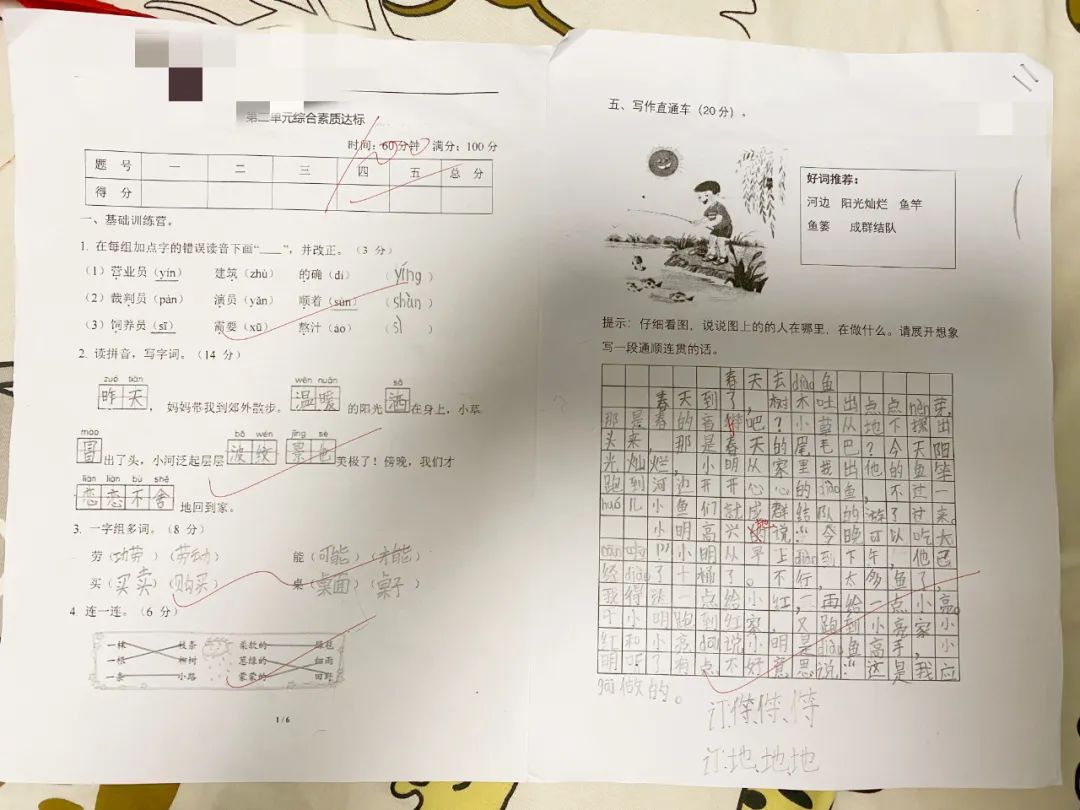 第二单元综合素质达标
时间：60分钟 满分：100分
题 号 一 二 三 四 五 总 分
得 分
一、基础训练营。
1. 在每组加点字的错误读音下画“____”，并改正。（3 分）
（1）营业员（yín） 建筑（zhù） 的确（dí） （yíng）
（2）裁判员（pàn） 演员（yǎn） 顺着（sùn） （shùn）
（3）饲养员（sī） 需要（xū） 熬汁（áo） （sì）
2. 读拼音，写字词。（14 分）
zuó tiān wēn nuǎn sǎ
昨天，妈妈带我到郊外散步。温暖的阳光洒在身上，小草
mào bō wén jǐng sè
冒出了头，小河泛起层层波纹 景色美极了！傍晚，我们才
liàn liàn bù shě
恋恋不舍地回到家。
3. 一字组多词。（8 分）
劳（功劳）（劳动） 能（可能）（才能）
买（买卖）（购买） 桌（桌面）（桌子）
4. 连一连。（6 分）
一棵 枝条 柔软的 绿毯
一根 柳树 葱绿的 细雨
一条 小路 蒙蒙的 田野
1/6
五、写作直通车（20分）。
好词推荐：
河边 阳光灿烂 鱼竿
鱼篓 成群结队
提示：仔细看图，说说图上的的人在哪里，在做什么。请展开想象
写一段通顺连贯的话。
春天去diào鱼
春天到了，树木吐出点点nèn芽，
那是春的音符吧？小草从地下探出
头来 那是春天的尾毛巴？今天阳
光灿烂，小明从家里找出他的鱼竿
跑到河边开开心心的diào鱼，不过一
huǐ儿小鱼们就成群结队的游了过来。
小明高兴地说：“今晚可以吃大
cān啦”小明从早上diào到下午，他已
经diào了十桶了。不行，太多鱼了，
我得送一点给小红，再给一点小亮。
于小明跑到红家，又跑到小亮家小
红和小亮dōu说小明是diào鱼高手，小
明听了有点不好意思说：“这是我应
gāi做的。
订：符、符、符
订：地、地、地